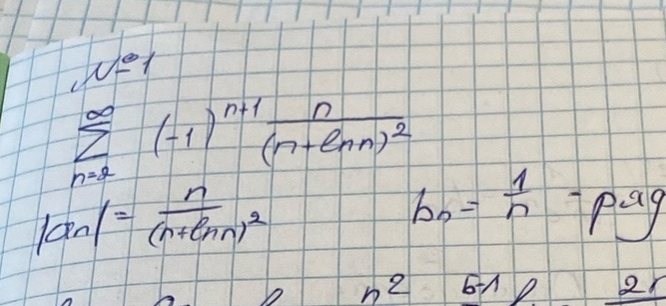 №1
∑_{n=2}^{∞} (-1)^{n+1} n/(n+lnn)^2
|an| = n/(n+lnn)^2 bn = 1/n - ряд